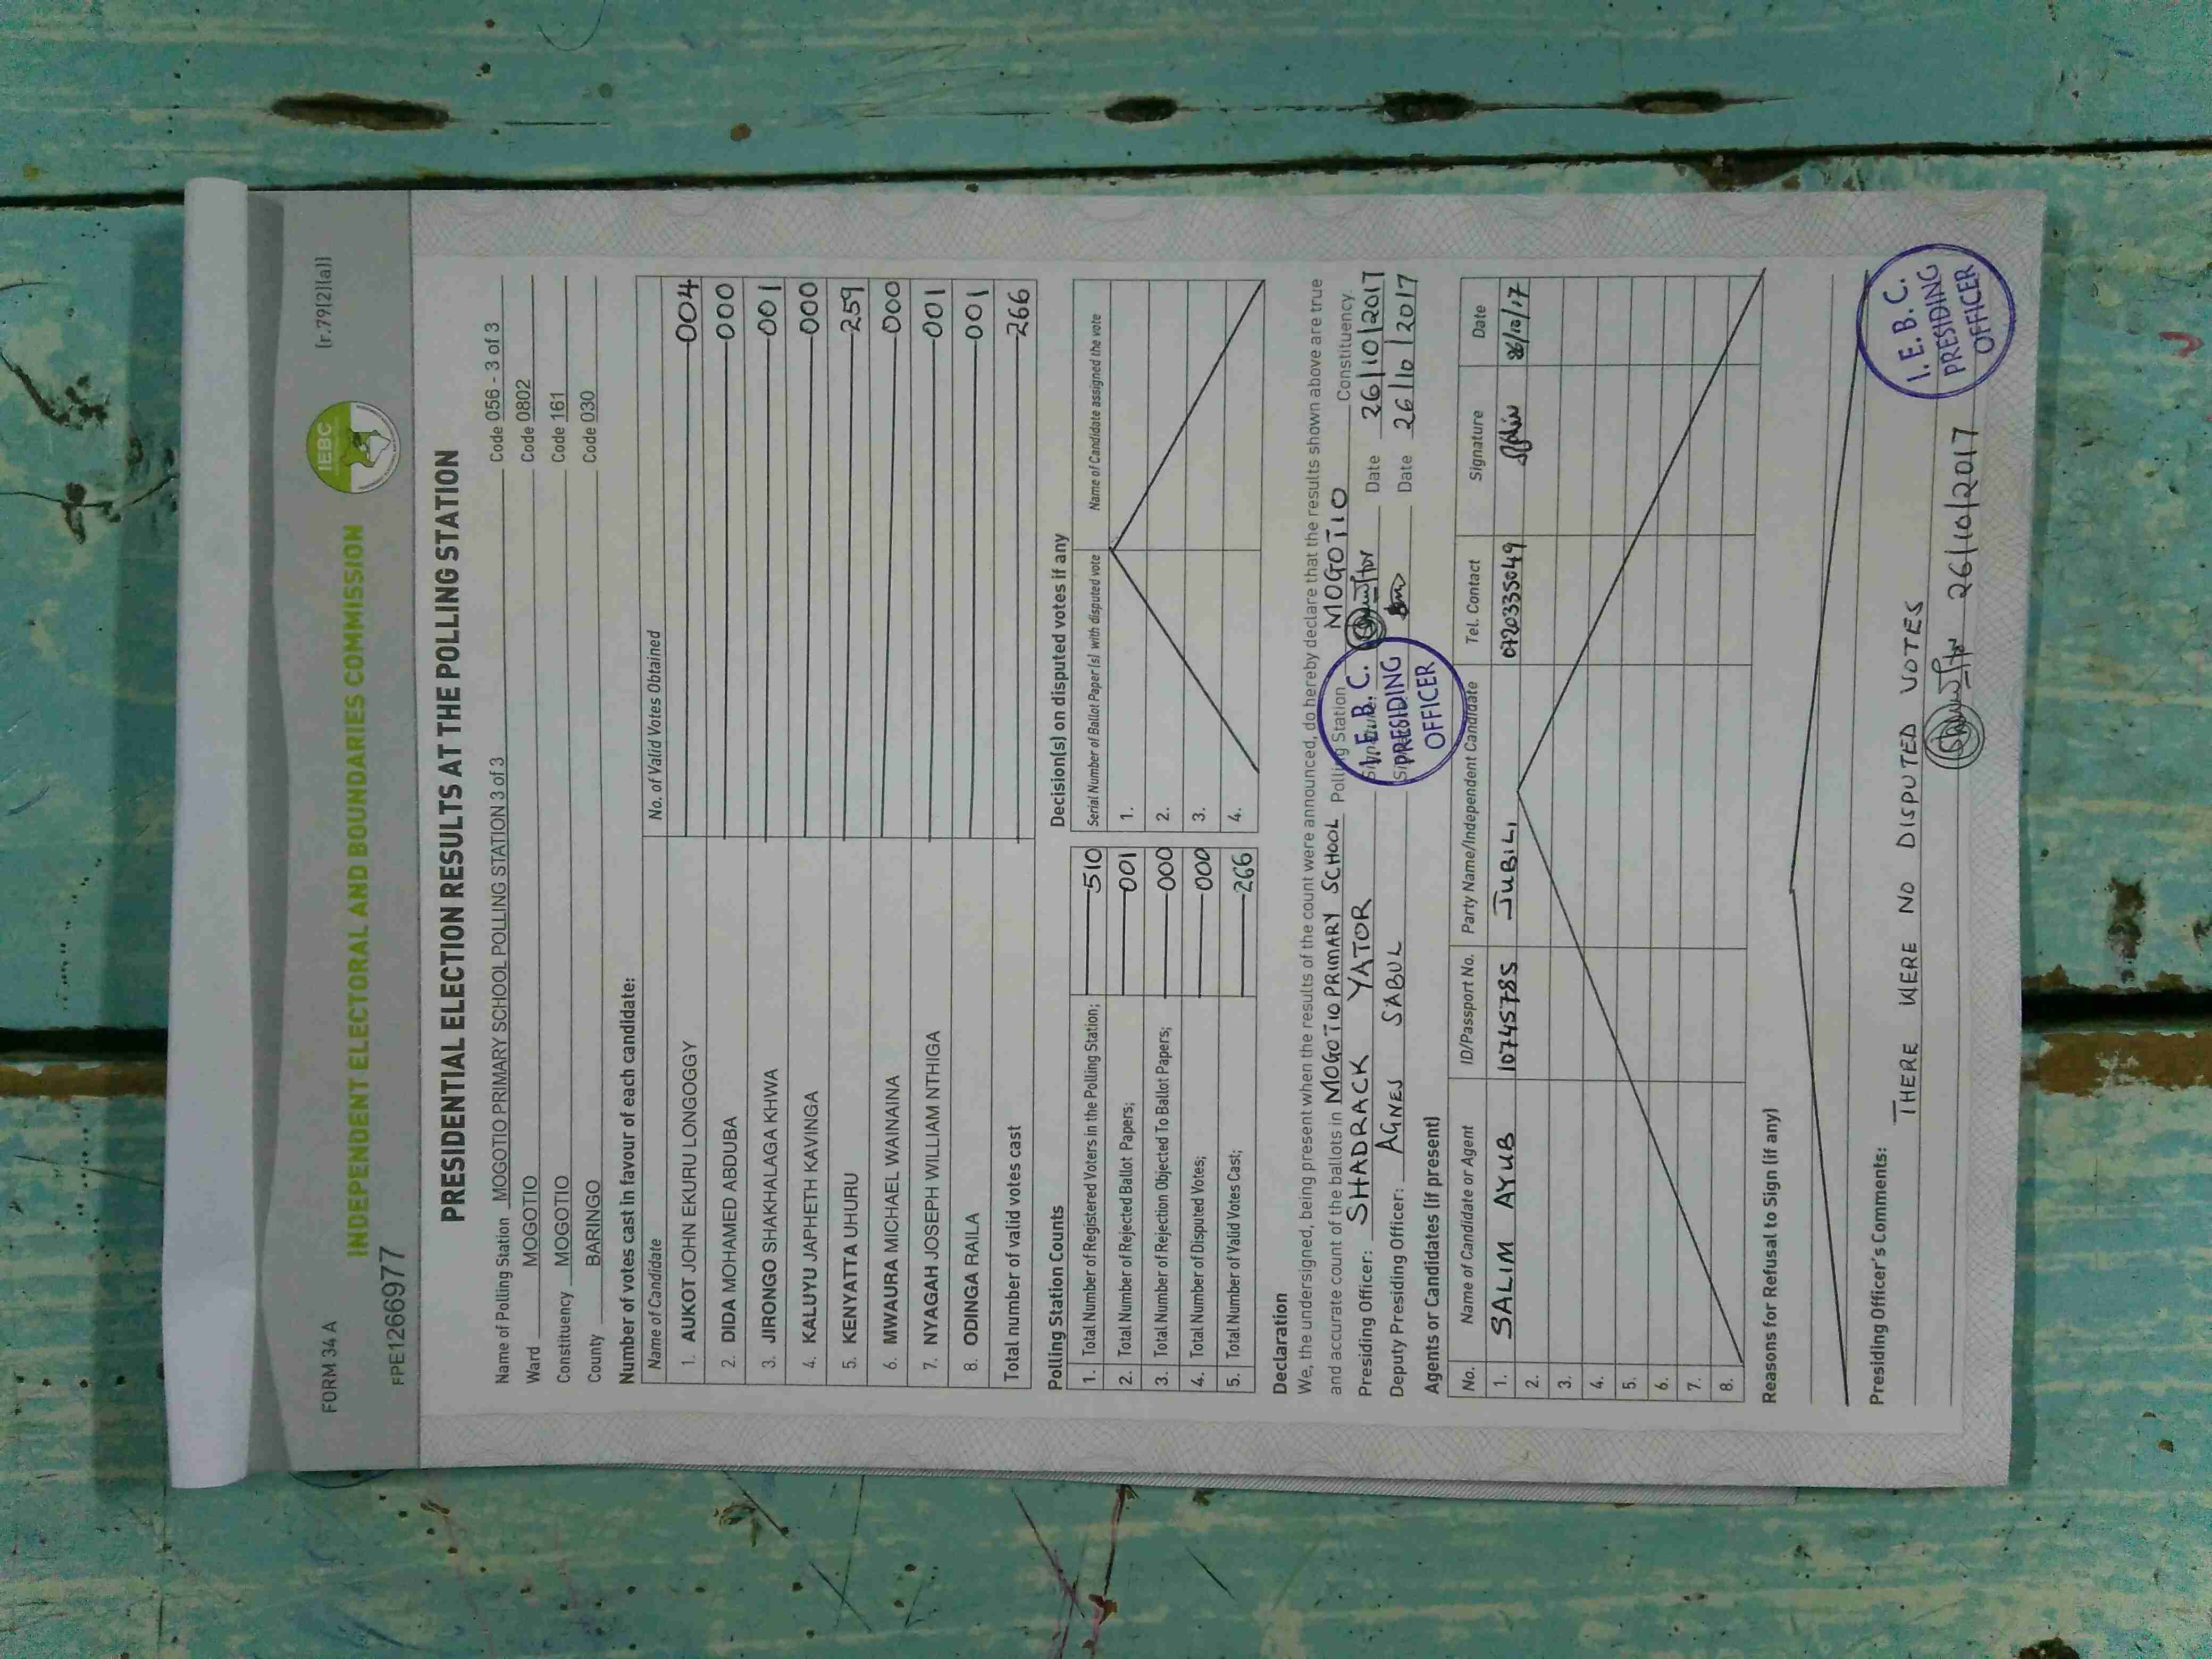 FORM 34 A
[r.79(2)(a)]
IEBC
INDEPENDENT ELECTORAL AND BOUNDARIES COMMISSION
FPE1266977
PRESIDENTIAL ELECTION RESULTS AT THE POLLING STATION
Name of Polling Station MOGOTIO PRIMARY SCHOOL POLLING STATION 3 of 3 Code 056 - 3 of 3
Ward MOGOTIO Code 0802
Constituency MOGOTIO Code 161
County BARINGO Code 030
Number of votes cast in favour of each candidate:
Name of Candidate No. of Valid Votes Obtained
1. AUKOT JOHN EKURU LONGOGGY 004
2. DIDA MOHAMED ABDUBA 000
3. JIRONGO SHAKHALAGA KHWA 001
4. KALUYU JAPHETH KAVINGA 000
5. KENYATTA UHURU 259
6. MWAURA MICHAEL WAINAINA 000
7. NYAGAH JOSEPH WILLIAM NTHIGA 001
8. ODINGA RAILA 001
Total number of valid votes cast 266
Polling Station Counts
1. Total Number of Registered Voters in the Polling Station; 510
2. Total Number of Rejected Ballot Papers; 001
3. Total Number of Rejection Objected To Ballot Papers; 000
4. Total Number of Disputed Votes; 000
5. Total Number of Valid Votes Cast; 266
Decision(s) on disputed votes if any
Serial Number of Ballot Paper(s) with disputed vote Name of Candidate assigned the vote
1.
2.
3.
4.
Declaration
We, the undersigned, being present when the results of the count were announced, do hereby declare that the results shown above are true
and accurate count of the ballots in MOGOTIO PRIMARY SCHOOL Polling Station MOGOTIO Constituency.
Presiding Officer: SHADRACK YATOR Date 26/10/2017
Deputy Presiding Officer: AGNES SABUL Date 26/10/2017
I. E. B. C.
PRESIDING
OFFICER
Agents or Candidates (if present)
No. Name of Candidate or Agent ID/Passport No. Party Name/Independent Candidate Tel. Contact Signature Date
1. SALIM AYUB 10745785 JUBILI 0720335049 26/10/17
2.
3.
4.
5.
6.
7.
8.
Reasons for Refusal to Sign (if any)
Presiding Officer's Comments:
THERE WERE NO DISPUTED VOTES
26/10/2017
I. E. B. C.
PRESIDING
OFFICER